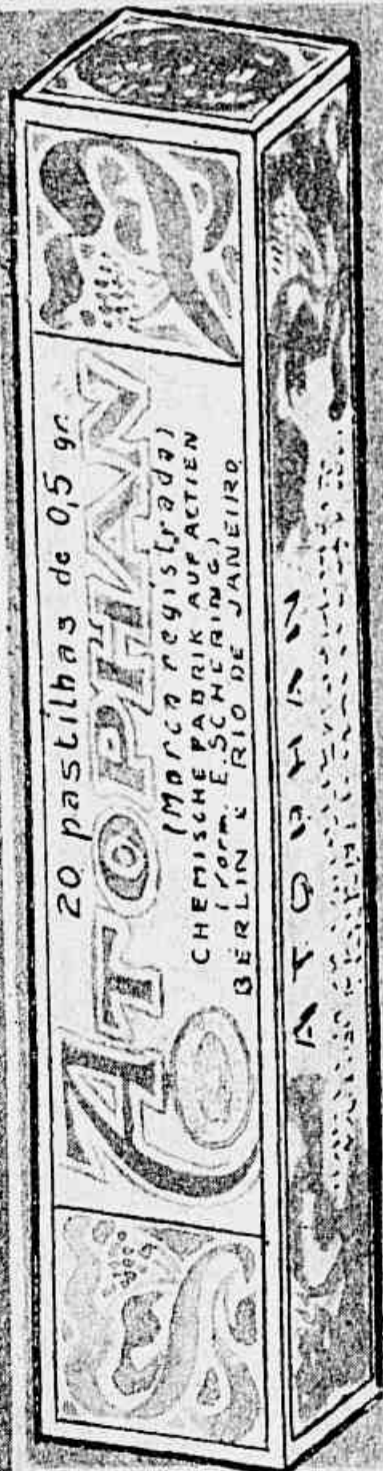 20 pastilhas de 0,5 gr.
ATOPHAN
(Marca registrada)
CHEMISCHE FABRIK AUF ACTIEN
(vorm. E. SCHERING)
BERLIN E RIO DE JANEIRO
ATOPHAN